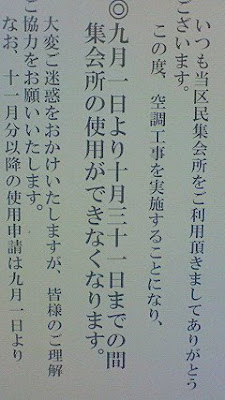 いつも当区民集会所をご利用頂きましてありがとう
ございます。
この度、空調工事を実施することになり、
◎九月一日より十月三十一日までの間
集会所の使用ができなくなります。
大変ご迷惑をおかけいたしますが、皆様のご理解
ご協力をお願いいたします。
なお、十一月分以降の使用申請は九月一日より